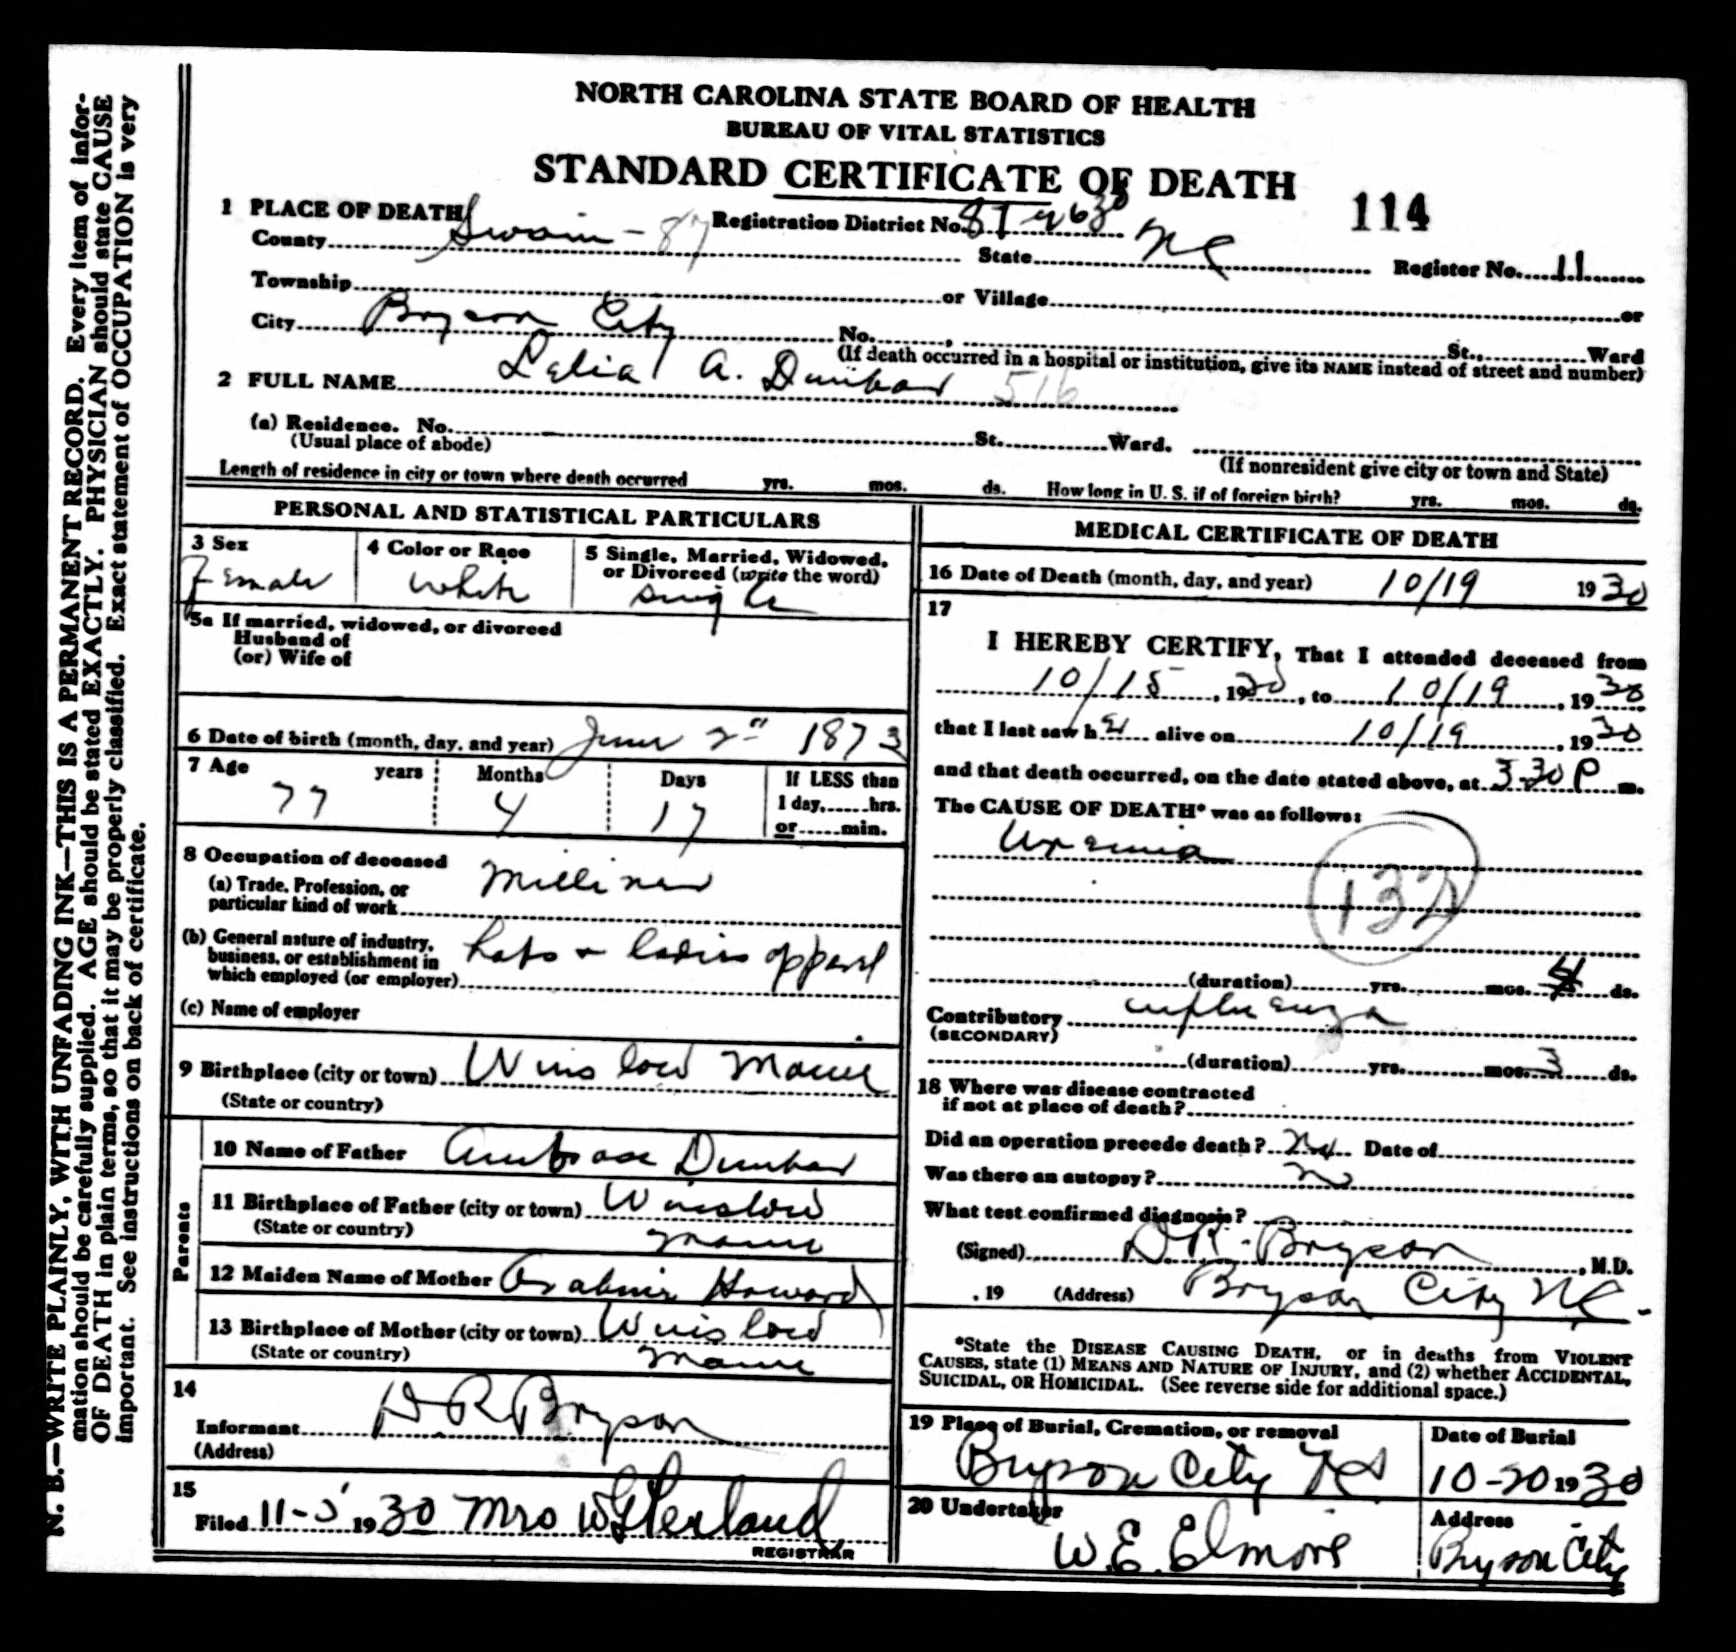 N. B.—WRITE PLAINLY, WITH UNFADING INK—THIS IS A PERMANENT RECORD. Every item of infor-
mation should be carefully supplied. AGE should be stated EXACTLY. PHYSICIAN should state CAUSE
OF DEATH in plain terms, so that it may be properly classified. Exact statement of OCCUPATION is very
important. See instructions on back of certificate.
NORTH CAROLINA STATE BOARD OF HEALTH
BUREAU OF VITAL STATISTICS
STANDARD CERTIFICATE OF DEATH
114
1 PLACE OF DEATH
Registration District No. 87
County Swain - 87 State NC Register No. 11
Township or Village or
City Bryson City No. , St., Ward
(If death occurred in a hospital or institution, give its NAME instead of street and number)
2 FULL NAME Lelia A. Dunbar 516
(a) Residence. No. St. Ward.
(Usual place of abode) (If nonresident give city or town and State)
Length of residence in city or town where death occurred yrs. mos. ds. How long in U. S. if of foreign birth? yrs. mos. ds.
PERSONAL AND STATISTICAL PARTICULARS
3 Sex 4 Color or Race 5 Single, Married, Widowed,
or Divorced (write the word)
Female white single
5a If married, widowed, or divorced
Husband of
(or) Wife of
6 Date of birth (month, day, and year) June 2" 1873
7 Age years Months Days If LESS than
77 4 17 1 day, hrs.
or min.
8 Occupation of deceased
(a) Trade, Profession, or
particular kind of work Milliner
(b) General nature of industry,
business, or establishment in
which employed (or employer) hats & ladies apparel
(c) Name of employer
9 Birthplace (city or town) Winslow Maine
(State or country)
Parents
10 Name of Father Ambrose Dunbar
11 Birthplace of Father (city or town) Winslow
(State or country) Maine
12 Maiden Name of Mother Howard
13 Birthplace of Mother (city or town) Winslow
(State or country) Maine
14
Informant D R Bryson
(Address)
15
Filed 11-5 1930 Mrs
REGISTRAR
MEDICAL CERTIFICATE OF DEATH
16 Date of Death (month, day, and year) 10/19 1930
17
I HEREBY CERTIFY, That I attended deceased from
10/15, 1930, to 10/19, 1930
that I last saw her alive on 10/19, 1930
and that death occurred, on the date stated above, at 3-30 P m.
The CAUSE OF DEATH* was as follows:
Uremia
132
(duration) yrs. mos. 4 ds.
Contributory influenza
(SECONDARY)
(duration) yrs. mos. 3 ds.
18 Where was disease contracted
if not at place of death?
Did an operation precede death? No Date of
Was there an autopsy? no
What test confirmed diagnosis?
(Signed) D R. Bryson, M.D.
, 19 (Address) Bryson City NC
*State the DISEASE CAUSING DEATH, or in deaths from VIOLENT
CAUSES, state (1) MEANS AND NATURE OF INJURY, and (2) whether ACCIDENTAL,
SUICIDAL, OR HOMICIDAL. (See reverse side for additional space.)
19 Place of Burial, Cremation, or removal Date of Burial
Bryson City NC 10-20 1930
20 Undertaker Address
W. E. Elmore Bryson City